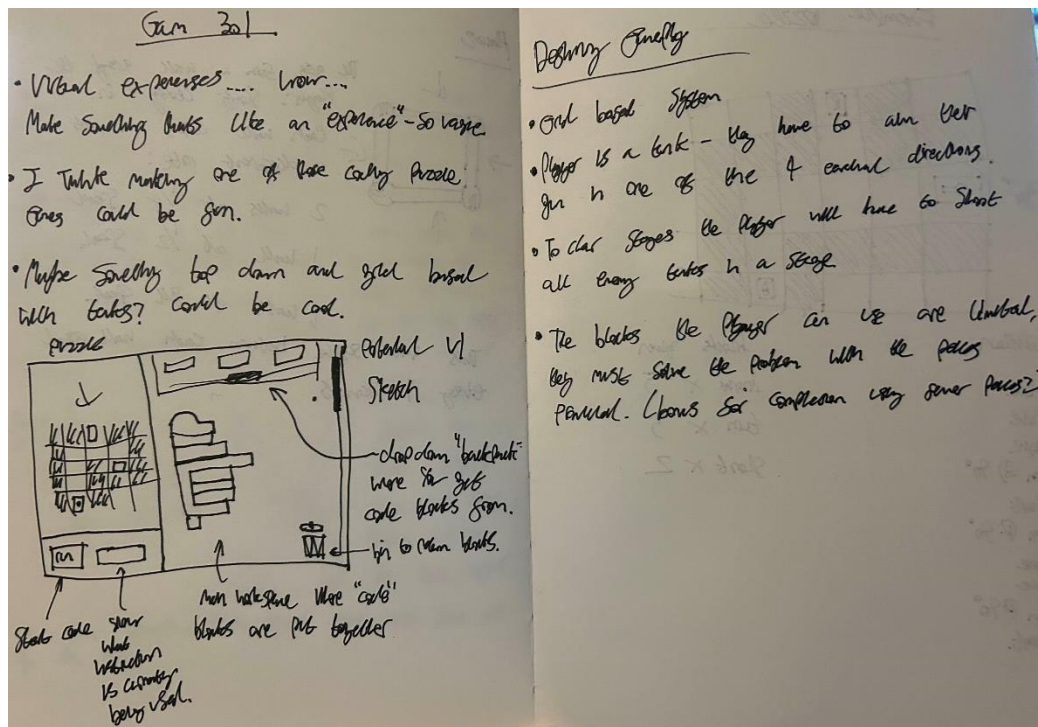 Gam 301
• Virtual experiences.... wow....
Make something thats like an "experience" - so vague
• I think making one of those coding puzzle
games could be fun.
• Maybe something top down and grid based
with tanks? could be cool.
puzzle
potential UI
sketch
drop down "backpack"
where you get
code blocks from.
bin to return blocks.
run
main workspace where "code"
blocks are put together
Start code
show
what
instruction
is currently
being used.
Designing gameplay
• Grid based system
• Player is a tank - they have to aim their
gun in one of the 4 cardinal directions.
• To clear stages the player will have to shoot
all enemy tanks in a stage
• The blocks the player can use are limited,
they must solve the problem with the pieces
provided. (bonus for completion using fewer pieces?